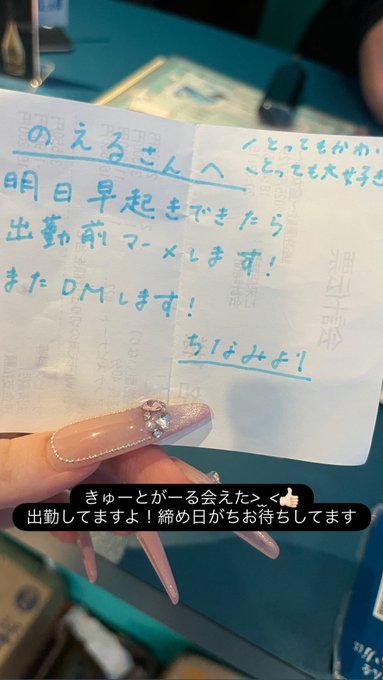 のえるさんへ
とってもかわ
とっても大好き
明日早起きできたら
出勤前マーメします!
またDMします!
ちなみより
きゅーとがーる会えた>_<👍🏻
出勤してますよ!締め日がちお待ちしてます